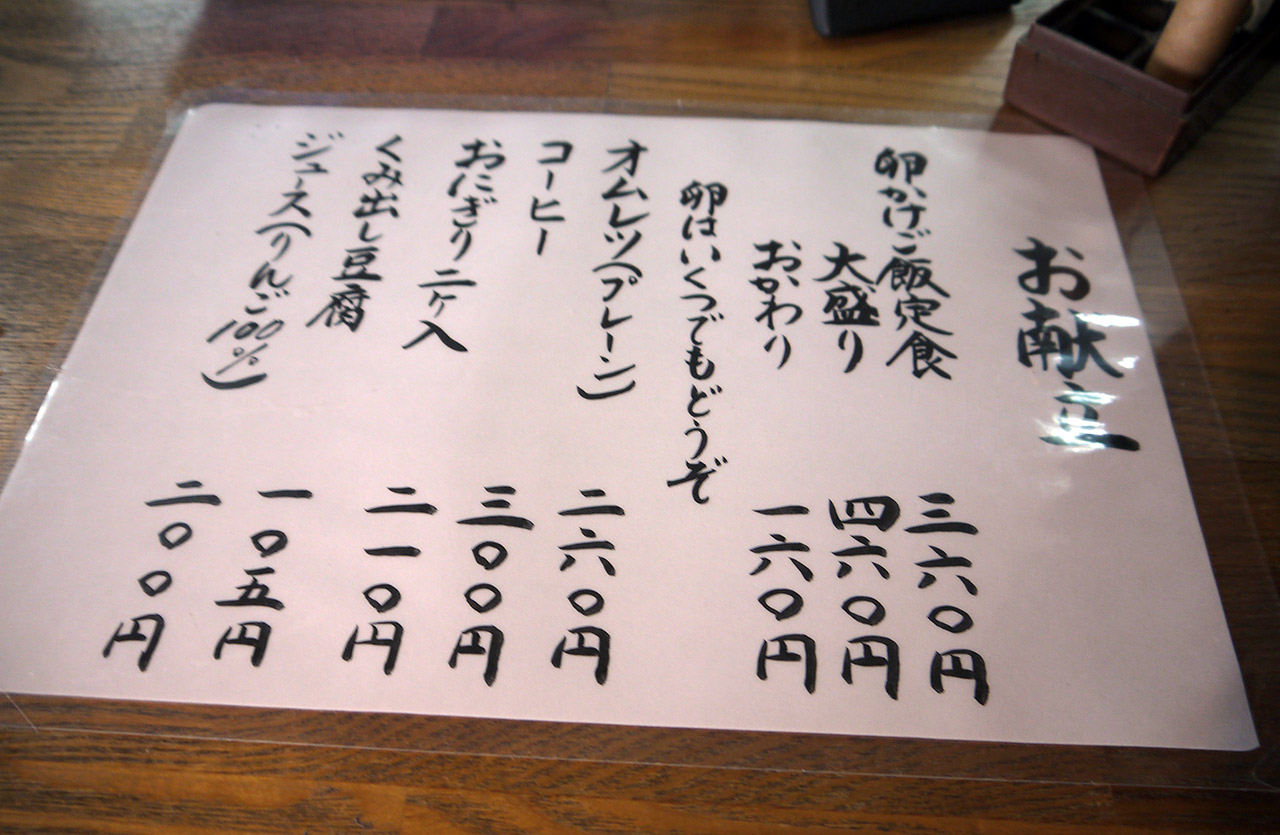 お献立
卵かけご飯定食 三六〇円
大盛り 四六〇円
おかわり 一六〇円
卵はいくつでもどうぞ
オムレツ(プレーン) 二六〇円
コーヒー 三〇〇円
おにぎり 二ヶ入 二一〇円
くみ出し豆腐 一〇五円
ジュース(りんご100%) 二〇〇円